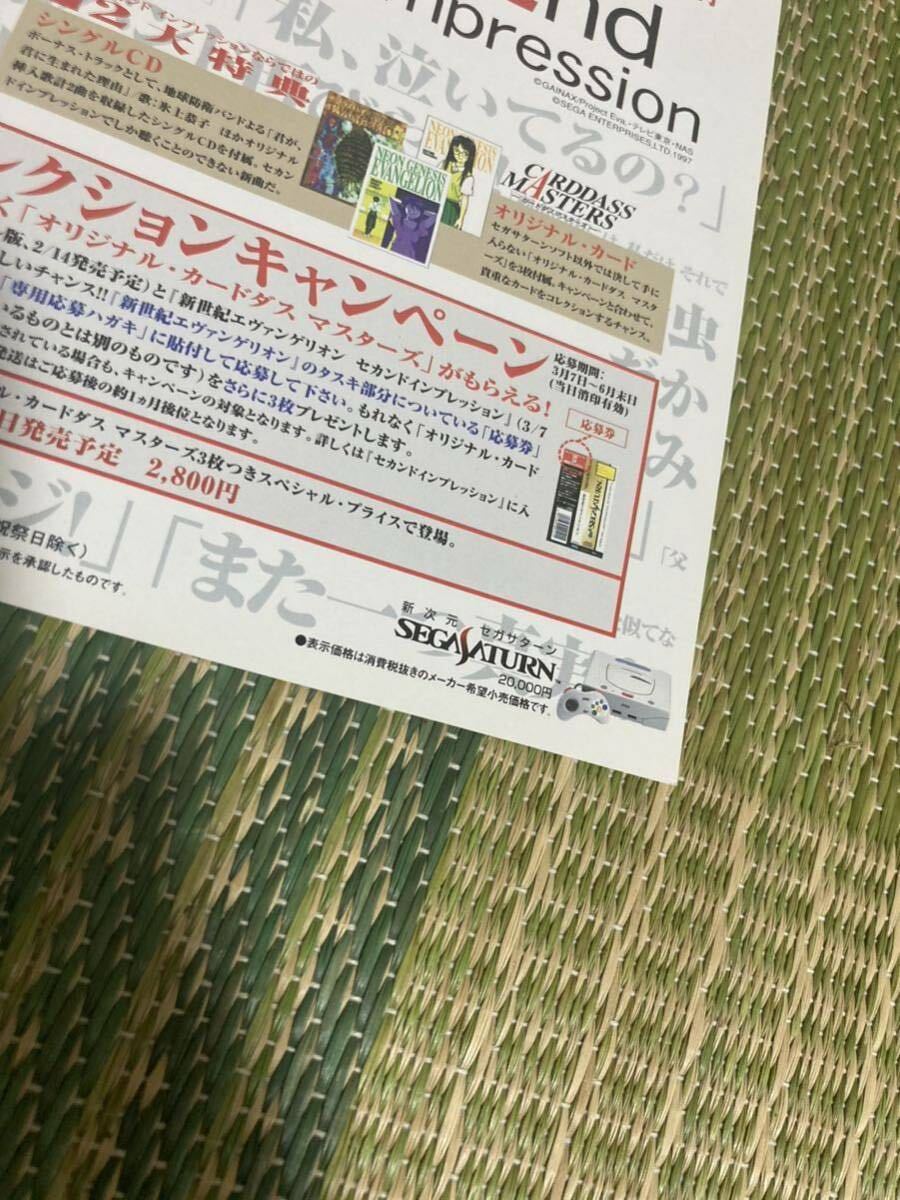 2nd
mpression
©GAINAX/Project Eva.・テレビ東京・NAS
©SEGA ENTERPRISES,LTD.1997
「私、泣いてるの?」
ンド インプレッションならではの
2大特典
シングルCD
ボーナス・トラックとして、地球防衛バンドによる「君が、
君に生まれた理由」歌:氷上恭子 ほかオリジナル
挿入歌計2曲を収録したシングルCDを付属。セカン
ドインプレッションでしか聴くことのできない新曲だ。
NEON GENESIS
EVANGELION
CARDDASS
MASTERS
オリジナル・カード
セガサターンソフト以外では決して手に
入らない「オリジナル・カードダス マスタ
ーズ」を3枚付属。キャンペーンと合わせて、
貴重なカードをコレクションするチャンス。
クションキャンペーン
く「オリジナル・カードダス マスターズ」がもらえる!
版、2/14発売予定)と「新世紀エヴァンゲリオン セカンドインプレッション」(3/7
しいチャンス!!「新世紀エヴァンゲリオン」のタスキ部分についている「応募券」
「専用応募ハガキ」に貼付して応募して下さい。もれなく「オリジナル・カード
いるものとは別のものです)をさらに3枚プレゼントします。
されている場合も、キャンペーンの対象となります。詳しくは「セカンドインプレッション」に入
発送はご応募後の約1ヵ月後位となります。
応募期間:
3月7日〜6月末日
(当日消印有効)
応募券
ル・カードダス マスターズ3枚つきスペシャル・プライスで登場。
日発売予定 2,800円
虫
だか
み
」
それで
「父
似てな
ジ!」「また一
祝祭日除く)
示を承認したものです。
新次元 セガサターン
SEGA SATURN™
20,000円
●表示価格は消費税抜きのメーカー希望小売価格です。